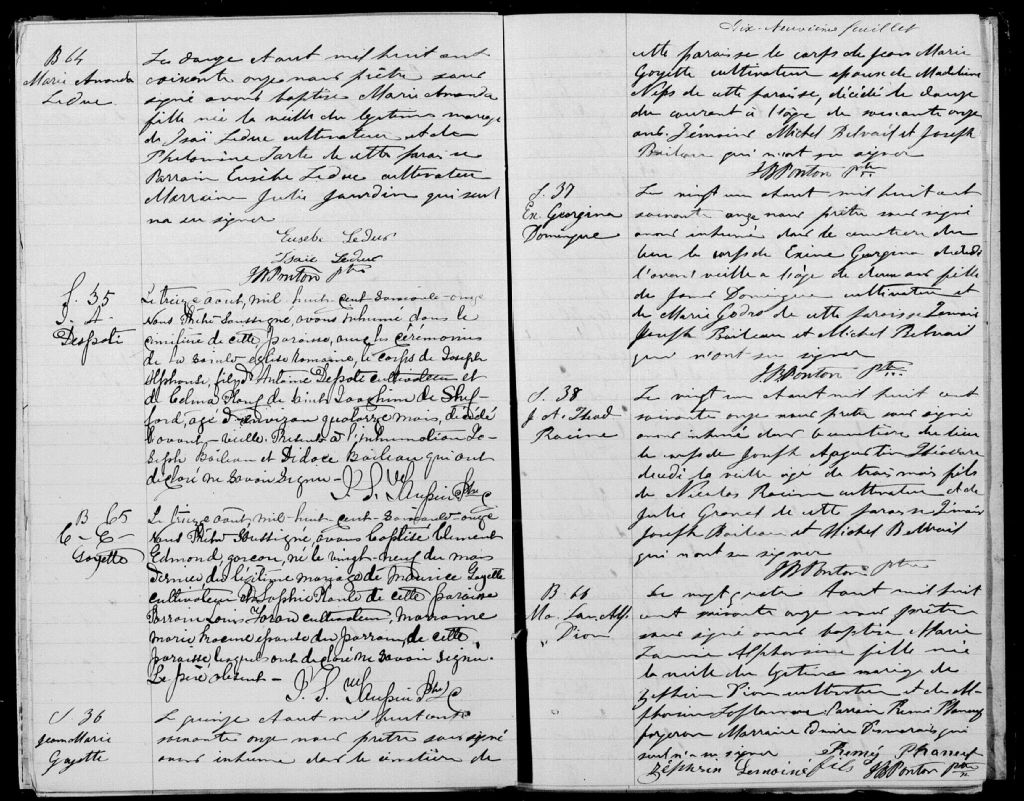 B 64
Marie Amanda
Leduc
Le douze Aout mil huit cent
soixante onze nous prêtre sous
signé avons baptisé Marie Amanda
fille née la veille du légitime mariage
de Isaï Leduc cultivateur et de
Philomène Tarte de cette paroisse
Parrain Eusèbe Leduc cultivateur
Marraine Julie Jourdin qui seul
na su signer
Eusebe Leduc
Isaie Leduc
JBPonton ptre
S. 35
J. A.
Despoti
Le treize août, mil huit cent soixante-onze
Nous Prêtre Soussigné, avons inhumé dans le
cimetière de cette paroisse, avec les cérémonies
de la sainte église Romaine, le corps de Joseph
Alphonse, fils d'Antoine Despoti cultivateur et
de Celma de Saint Joachim de Shef-
ford, agé d'environ quatorze mois, décédé
l'avant-veille. Présents à l'inhumation Jo-
seph Boileau et Didace Boileau qui ont
déclaré ne savoir signer
B 65
C - E -
Goyette
Le treize août, mil-huit cent-soixante-onze
Nous Prêtre Soussigné, avons baptisé Clément
Edmond, garçon, né le vingt-neuf du mois
dernier du légitime mariage de Maurice Goyette
cultivateur et Sophie Plante de cette paroisse
Parrain Louis cultivateur, Marraine
Marie Racine épouse du parrain, de cette
paroisse lesquels ont déclaré ne savoir signer.
Le père absent
S. 36
Jean Marie
Goyette
Le quinze Aout mil huit cent
soixante onze nous prêtre sous signé
avons inhumé dans le cimetière de
Dix-Neuvième feuillet
cette paroisse le corps de Jean Marie
Goyette cultivateur epoux de Madeleine
de cette paroisse, décédé le douze
du courant à l'âge de soixante onze
ans. Témoins Michel Belvail et Joseph
Boileau qui n'ont su signer
JBPonton ptre
S. 37
Ex. Georgina
Domingue
Le vingt un Aout mil huit cent
soixante onze nous prêtre sous signé
avons inhumé dans le cimetière du
lieu le corps de Exine Georgina décédée
l'avant veille a l'âge de deux ans fille
de Domingue cultivateur et
de Marie Godro de cette paroisse Témoins
Joseph Boileau et Michel Belvail
qui n'ont su signer
JBPonton ptre
S. 38
J. A. Théod
Racine
Le vingt un Aout mil huit cent
soixante onze nous prêtre sous signé
avons inhumé dans le cimetière du lieu
le corps de Joseph Augustin Théodore
décédé la veille agé de trois mois fils
de Nicolas Racine cultivateur et de
Julie de cette paroisse Témoins
Joseph Boileau et Michel Belvail
qui n'ont su signer
JBPonton ptre
B. 66
Ma. Laura Alp.
Dion
Le vingt quatre Aout mil huit
cent soixante onze nous prêtre
sous signé avons baptisé Marie
Laura Alphonsine fille née
la veille du légitime mariage de
Zéphirin Dion cultivateur et de
Parrain Remi Phaneuf
forgeron Marraine Desmarais qui
seule n'a su signer
Remis Phaneuf
fils
Zéphirin Lemoine
JBPonton ptre